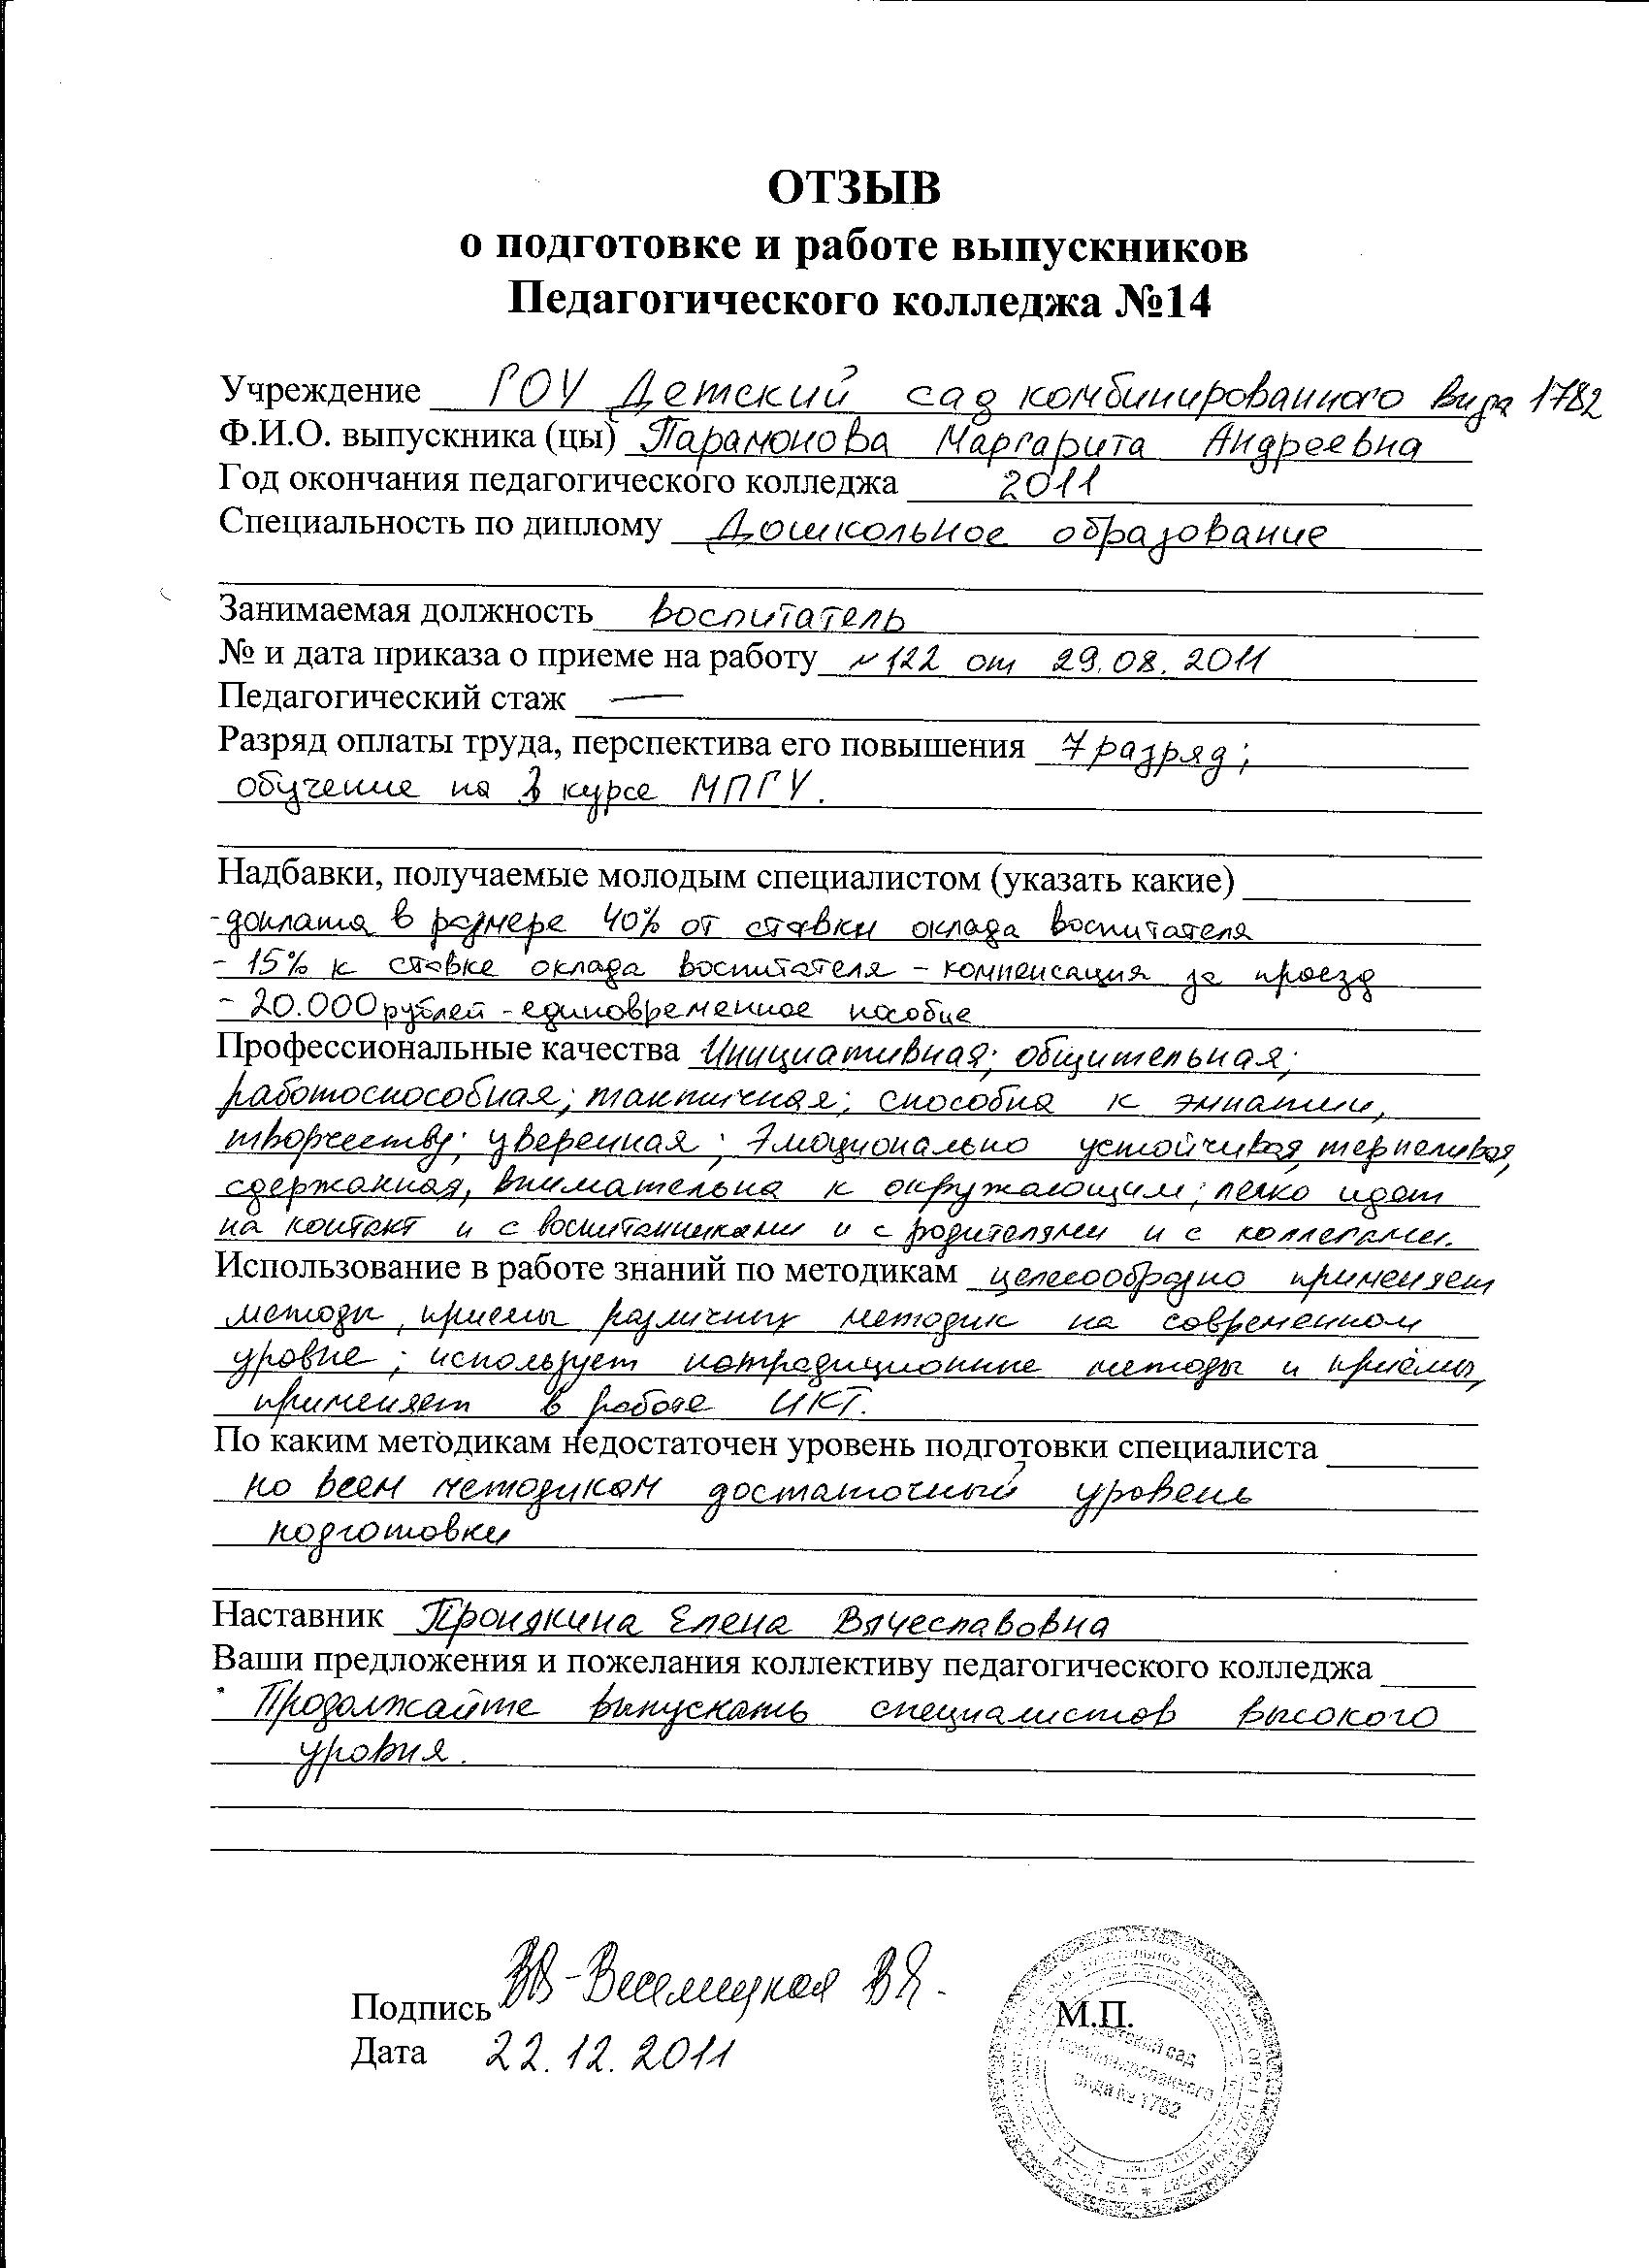 ОТЗЫВ
о подготовке и работе выпускников
Педагогического колледжа №14
Учреждение ГОУ Детский сад комбинированного вида 1782
Ф.И.О. выпускника (цы) Парамонова Маргарита Андреевна
Год окончания педагогического колледжа 2011
Специальность по диплому Дошкольное образование
Занимаемая должность воспитатель
№ и дата приказа о приеме на работу №122 от 29.08.2011
Педагогический стаж —
Разряд оплаты труда, перспектива его повышения 7 разряд;
обучение на курсе МПГУ.
Надбавки, получаемые молодым специалистом (указать какие)
- доплата в размере 40% от ставки оклада воспитателя
- 15% к ставке оклада воспитателя - компенсация за проезд
- 20.000 рублей - единовременное пособие
Профессиональные качества Инициативная; общительная;
работоспособная; тактичная; способна к эмпатии,
творчеству; уверенная; эмоционально устойчивая, терпеливая,
сдержанная, внимательна к окружающим; легко идет
на контакт и с воспитанниками и с родителями и с коллегами.
Использование в работе знаний по методикам целесообразно применяет
методы, приемы различных методик на современном
уровне; использует нетрадиционные методы и приёмы,
применяет в работе ИКТ.
По каким методикам недостаточен уровень подготовки специалиста
по всем методикам достаточный уровень
подготовки
Наставник Пронякина Елена Вячеславовна
Ваши предложения и пожелания коллективу педагогического колледжа
Продолжайте выпускать специалистов высокого
уровня.
Подпись Веселицкая В.Я.
Дата 22.12.2011
М.П.
детский сад
комбинированного
вида № 1782
МОСКВА